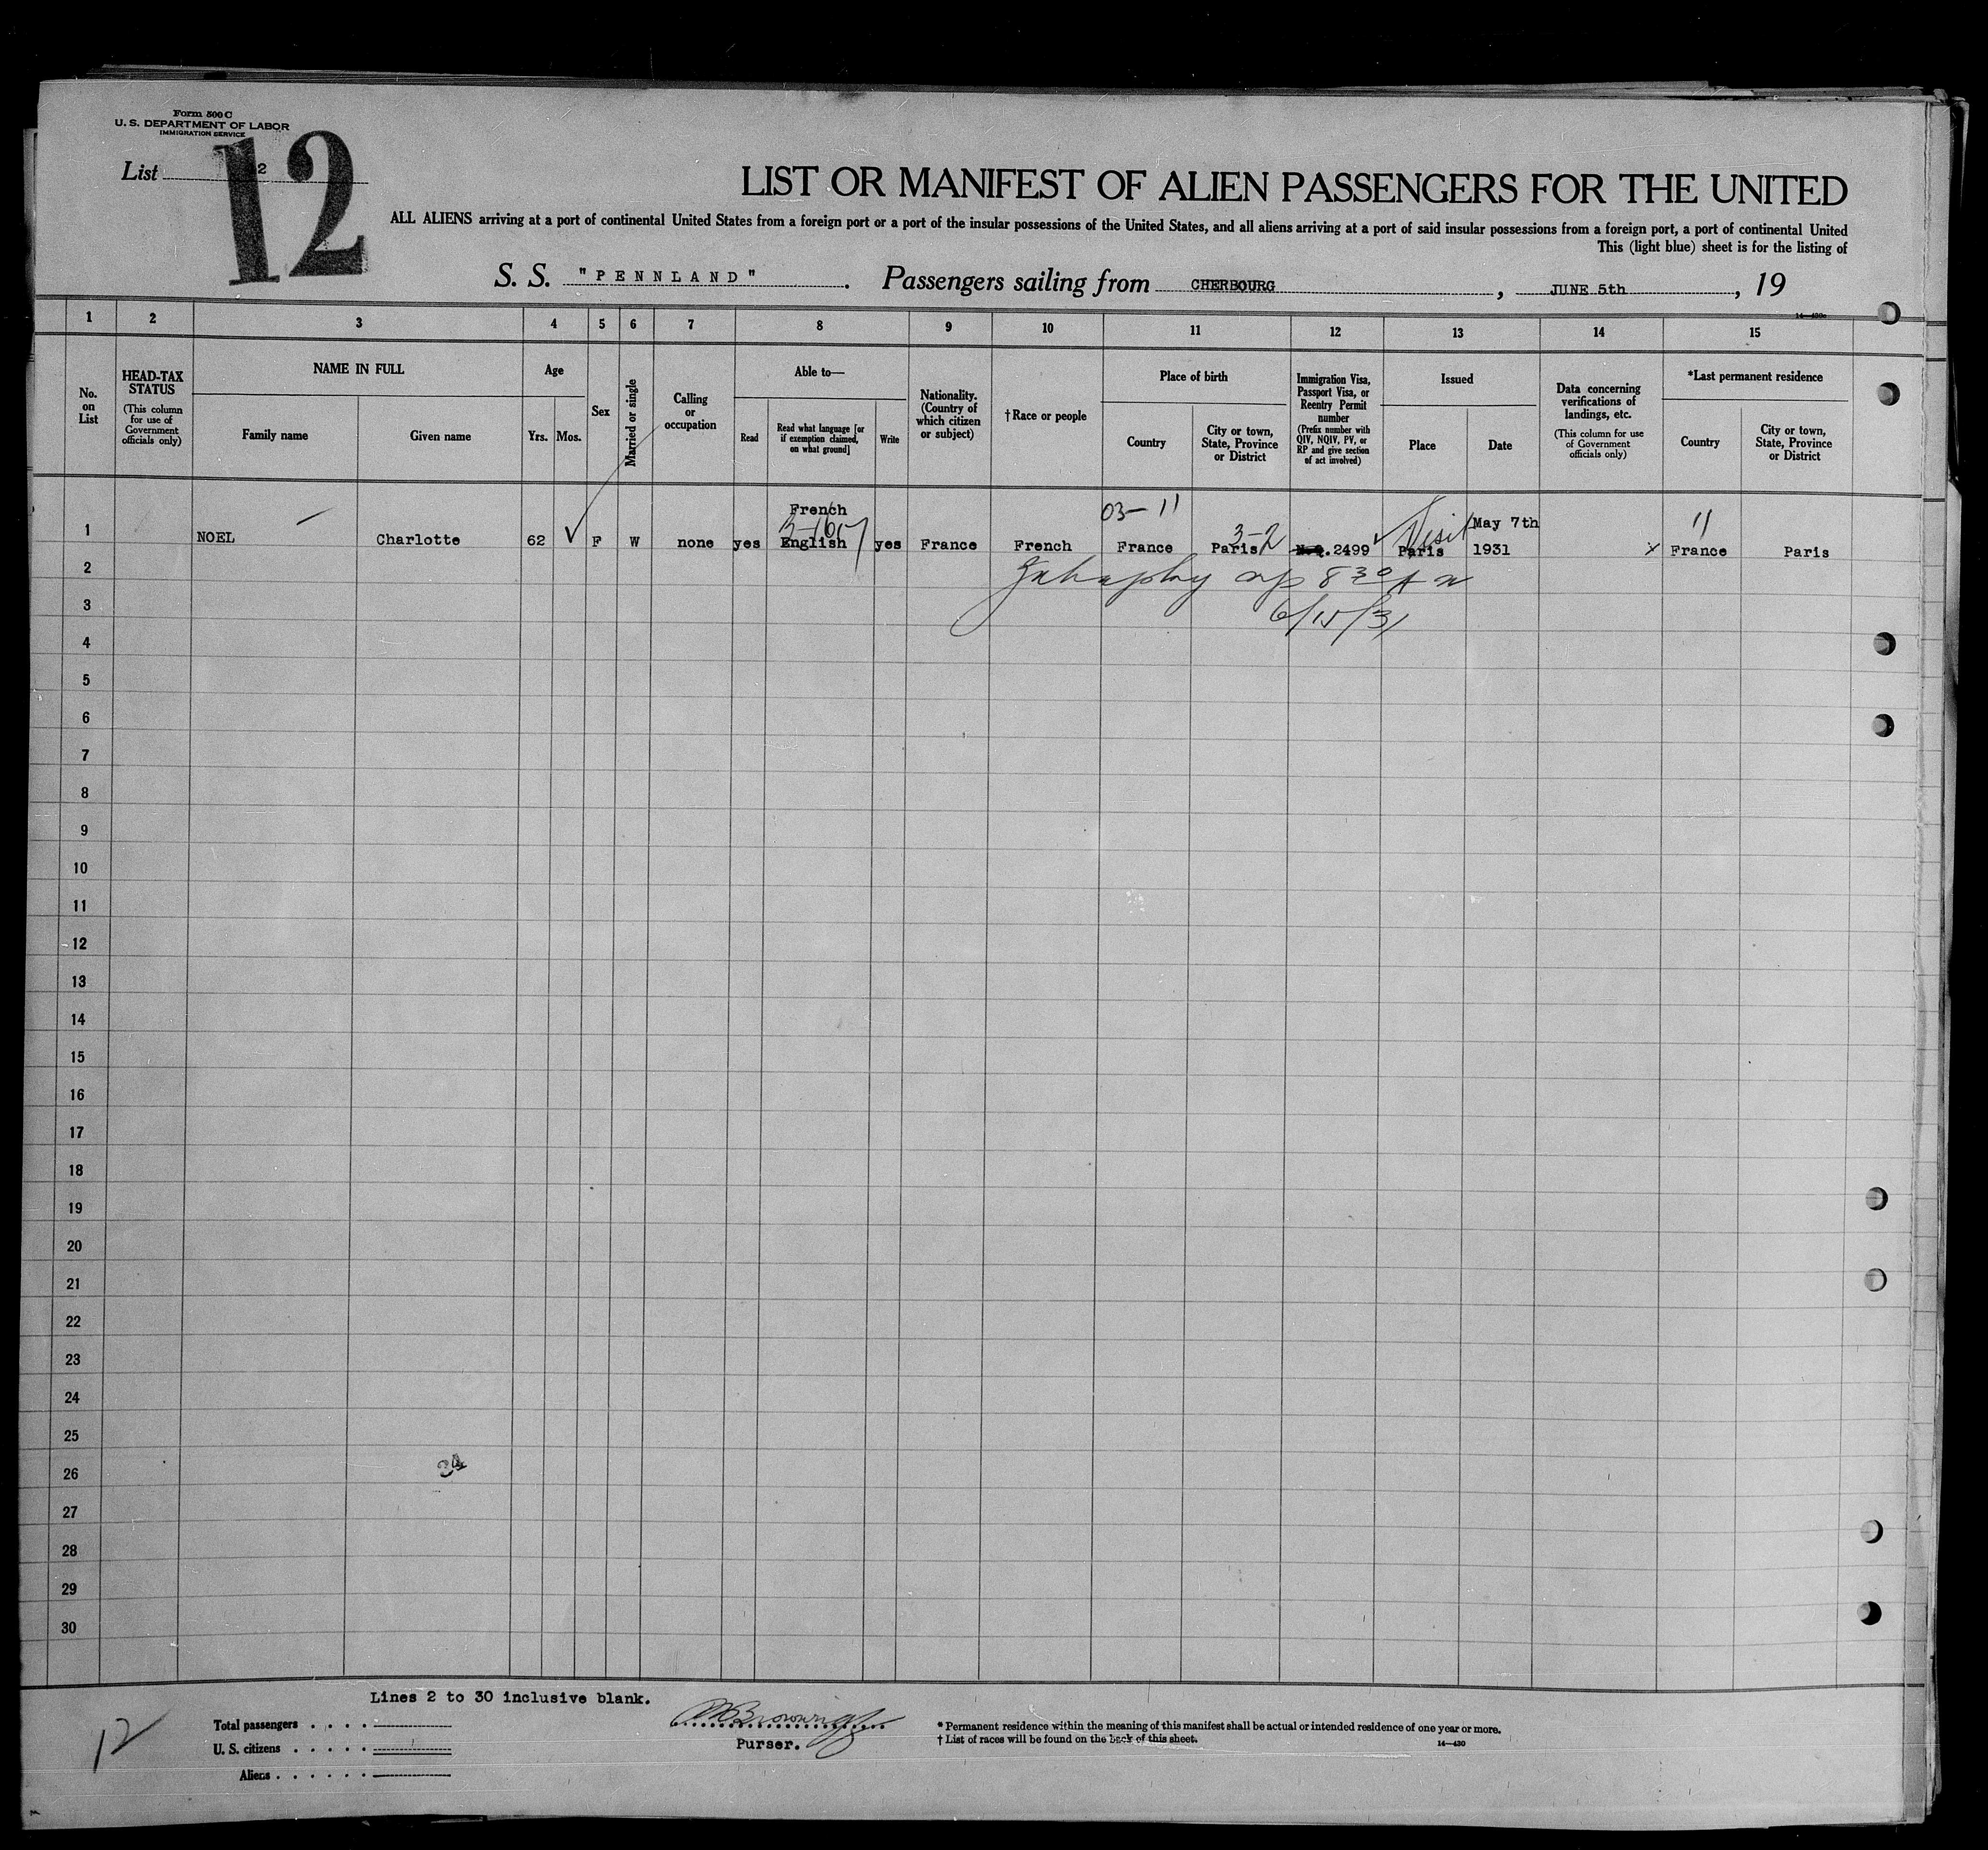 Form 500 C
U. S. DEPARTMENT OF LABOR
IMMIGRATION SERVICE
List 2
12
LIST OR MANIFEST OF ALIEN PASSENGERS FOR THE UNITED
ALL ALIENS arriving at a port of continental United States from a foreign port or a port of the insular possessions of the United States, and all aliens arriving at a port of said insular possessions from a foreign port, a port of continental United
This (light blue) sheet is for the listing of
S. S. "PENNLAND". Passengers sailing from CHERBOURG, JUNE 5th, 19
1 2 3 4 5 6 7 8 9 10 11 12 13 14 15
No. on List
HEAD-TAX STATUS
(This column for use of Government officials only)
NAME IN FULL
Family name
Given name
Age
Yrs. Mos.
Sex
Married or single
Calling or occupation
Able to—
Read
Read what language [or if exemption claimed, on what ground]
Write
Nationality. (Country of which citizen or subject)
†Race or people
Place of birth
Country
City or town, State, Province or District
Immigration Visa, Passport Visa, or Reentry Permit number
(Prefix number with QIV, NQIV, PV, or RP and give section of act involved)
Issued
Place
Date
Data concerning verifications of landings, etc.
(This column for use of Government officials only)
*Last permanent residence
Country
City or town, State, Province or District
French 03-11 May 7th 11
1 NOEL Charlotte 62 F W none yes English yes France French France Paris 3-2 2499 Visit Paris 1931 France Paris
2
6/15/31
3
4
5
6
7
8
9
10
11
12
13
14
15
16
17
18
19
20
21
22
23
24
25
26
27
28
29
30
Lines 2 to 30 inclusive blank.
12
Total passengers
U. S. citizens
Aliens
Purser.
* Permanent residence within the meaning of this manifest shall be actual or intended residence of one year or more.
† List of races will be found on the back of this sheet.
14—430